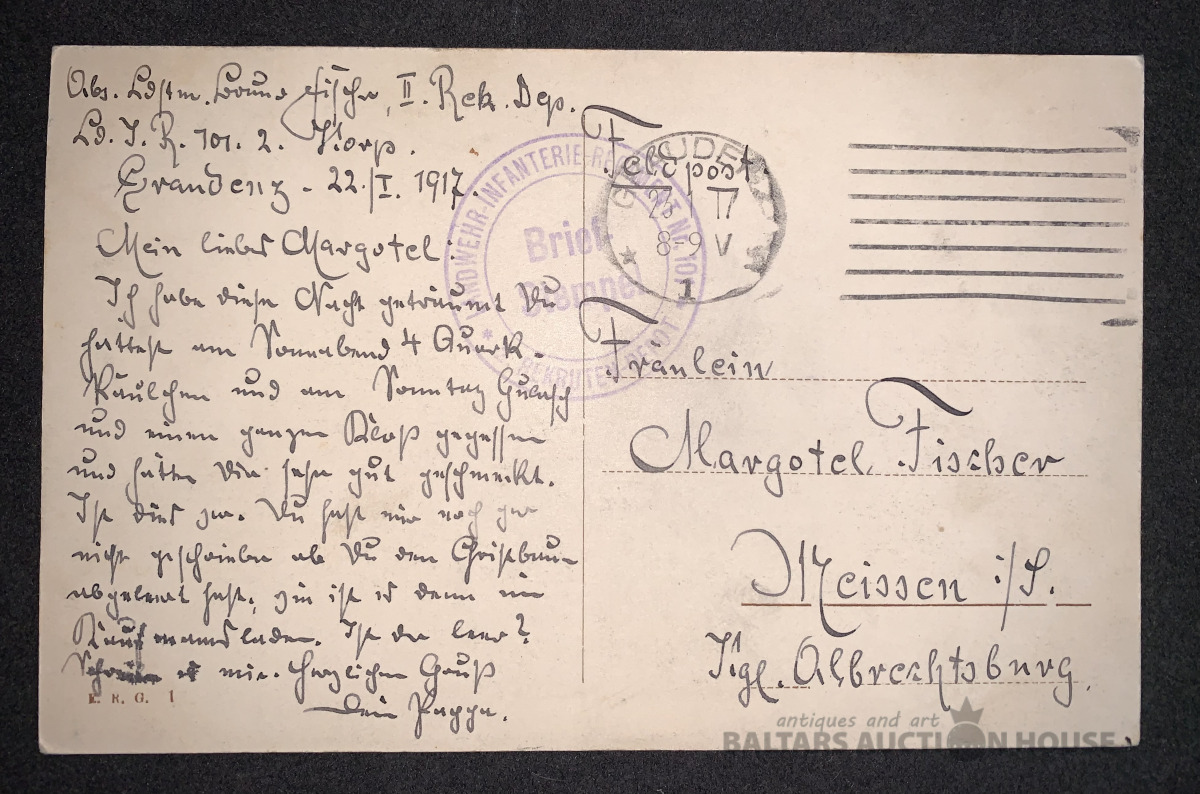 Abs. Ldstm. Bruno Fischer, II. Rek. Dep.
Ld. I. R. 101. 2. Korp.
Graudenz - 22./I. 1917.
Mein liebes Margotel:
Ich habe diese Nacht geträumt Du
hättest am Sonnabend 4 Quark-
käulchen und am Sonntag Gulasch
und einen ganzen Kloß gegessen
und hätten Dir sehr gut geschmeckt.
Ist dies wahr. Du hast mir noch gar
nicht geschrieben ob Du den Christbaum
abgeleert hast, wie ist es denn im
Kaufmannsladen. Ist der leer?
Schreibe es mir. Herzlichen Gruß
Dein Pappa.
E. R. G. 1
LANDWEHR-INFANTERIE-REGIMENT No 101
Brief
Stempel
REKRUTEN DEPOT
Feldpost.
GRAUDENZ
23 17
8-9 V
1
Fräulein
Margotel Fischer
Meissen i/S.
Kgl. Albrechtsburg.
antiques and art
BALTARS AUCTION HOUSE